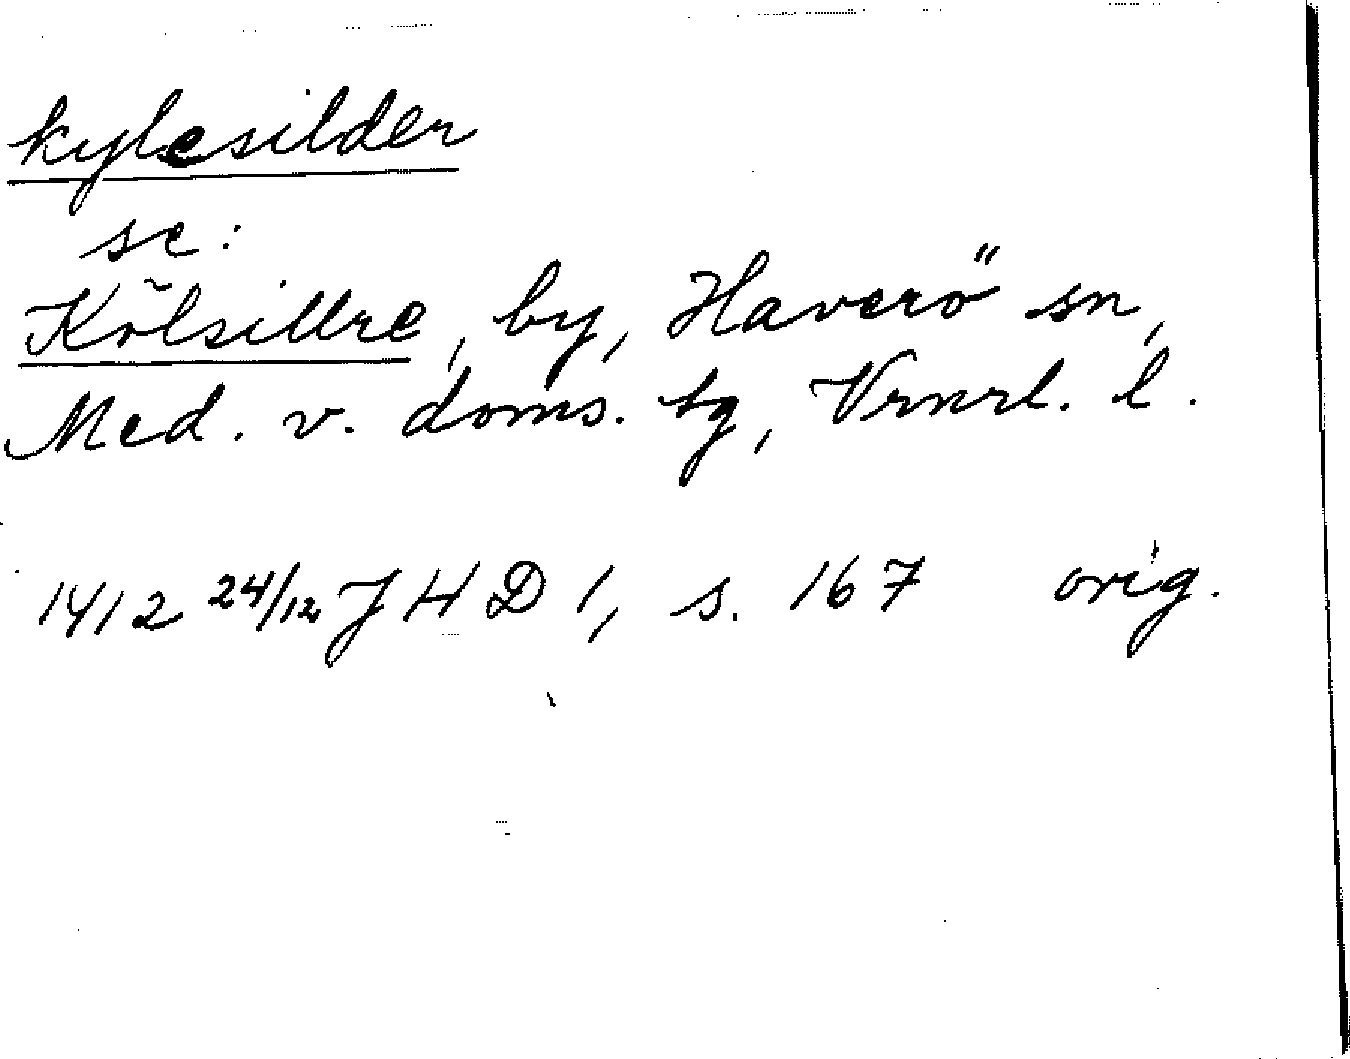 kylesilder
se:
Kölsillre, by, Haverö sn,
Med. v. doms. tg, Vrnrl. l.
1412 24/12 JHD 1, s. 167 orig.